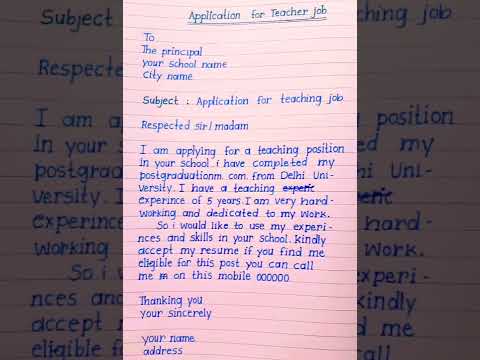 Application for Teacher job
To
The principal
your school name
City name
Subject : Application for teaching job
Respected sir/madam
I am applying for a teaching position
in your school. i have completed my
postgraduationm. com. from Delhi Uni-
versity. I have a teaching experic
experince of 5 years. I am very hard-
working and dedicated to my work.
So i would like to use my experi-
nces and skills in your school. kindly
accept my resume if you find me
eligible for this post. you can call
me on this mobile 000000.
Thanking you
your sincerely
your name
address